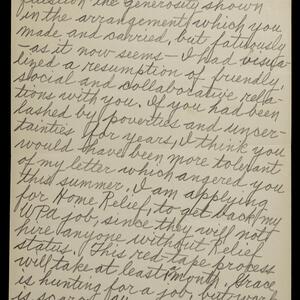 question the generosity shown
in the arrangement which you
made and carried, but fatuously
- as it now seems - I had visua-
lized a resumption of friendly,
social and collaborative rela-
tions with you. If you had been
lashed by poverties and uncer-
tainties for years, I think you
would have been more tolerant
of my letter which angered you
this summer. I am applying
for Home Relief, to get back my
WPA job, since they will not
hire anyone without Relief
status. This red-tape process
will take at least month. Grace
is hunting for a job, but work
is scarce